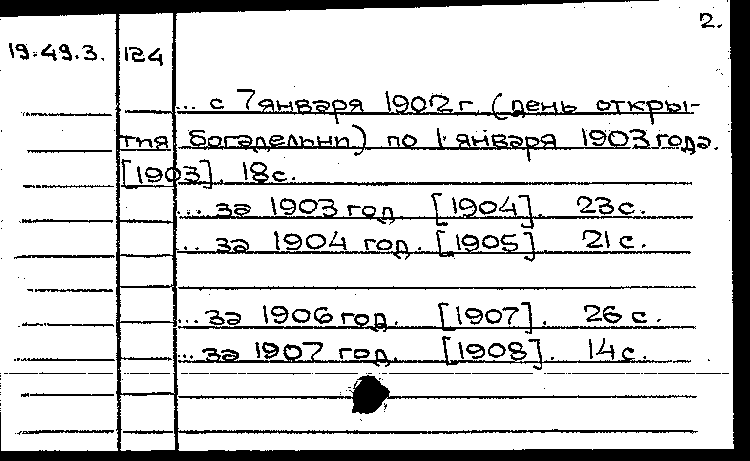 2.
19.49.3. 124
... с 7 января 1902 г. (день откры-
тия богадельни) по 1 января 1903 года.
[1903]. 18 с.
... за 1903 год. [1904]. 23 с.
... за 1904 год. [1905]. 21 с.
... за 1906 год. [1907]. 26 с.
... за 1907 год. [1908]. 14 с.